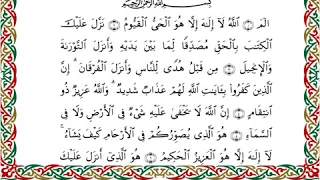 بِسْمِ اللَّهِ الرَّحْمَٰنِ الرَّحِيمِ
الٓمٓ ۝ اللَّهُ لَا إِلَٰهَ إِلَّا هُوَ الْحَيُّ الْقَيُّومُ ۝ نَزَّلَ عَلَيْكَ
الْكِتَٰبَ بِالْحَقِّ مُصَدِّقًا لِّمَا بَيْنَ يَدَيْهِ وَأَنزَلَ التَّوْرَىٰةَ
وَالْإِنجِيلَ ۝ مِن قَبْلُ هُدًى لِّلنَّاسِ وَأَنزَلَ الْفُرْقَانَ ۗ إِنَّ
الَّذِينَ كَفَرُوا بِـَٔايَٰتِ اللَّهِ لَهُمْ عَذَابٌ شَدِيدٌ ۗ وَاللَّهُ عَزِيزٌ ذُو
انتِقَامٍ ۝ إِنَّ اللَّهَ لَا يَخْفَىٰ عَلَيْهِ شَىْءٌ فِى الْأَرْضِ وَلَا فِى
السَّمَآءِ ۝ هُوَ الَّذِى يُصَوِّرُكُمْ فِى الْأَرْحَامِ كَيْفَ يَشَآءُ ۚ
لَآ إِلَٰهَ إِلَّا هُوَ الْعَزِيزُ الْحَكِيمُ ۝ هُوَ الَّذِىٓ أَنزَلَ عَلَيْكَ